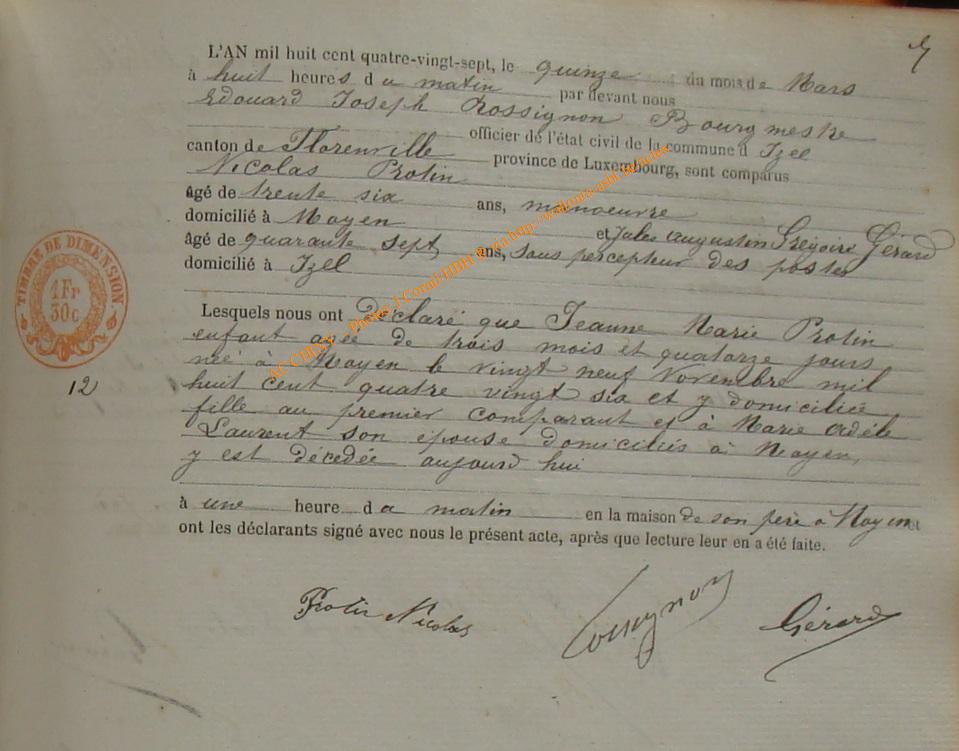 L'AN mil huit cent quatre-vingt-sept, le quinze du mois de Mars
à huit heures du matin par devant nous
Edouard Joseph Rossignon Bourgmestre
officier de l'état civil de la commune d'Izel
canton de Florenville province de Luxembourg, sont comparus
Nicolas Protin
âgé de trente six ans, manoeuvre
domicilié à Moyen et Jules Augustin Grégoire Gérard
âgé de quarante sept ans, sous percepteur des postes
domicilié à Izel
Lesquels nous ont déclaré que Jeanne Marie Protin
enfant agée de trois mois et quatorze jours
née à Moyen le vingt neuf Novembre mil
huit cent quatre vingt six et y domiciliée,
fille au premier comparant et à Marie Adèle
Laurent son épouse domiciliés à Moyen,
y est décedée aujourd'hui
à une heure da matin en la maison de son père à Moyen et
ont les déclarants signé avec nous le présent acte, après que lecture leur en a été faite.
Protin Nicolas Rossignon Gérard
TIMBRE DE DIMENSION
1 Fr
30 c
12